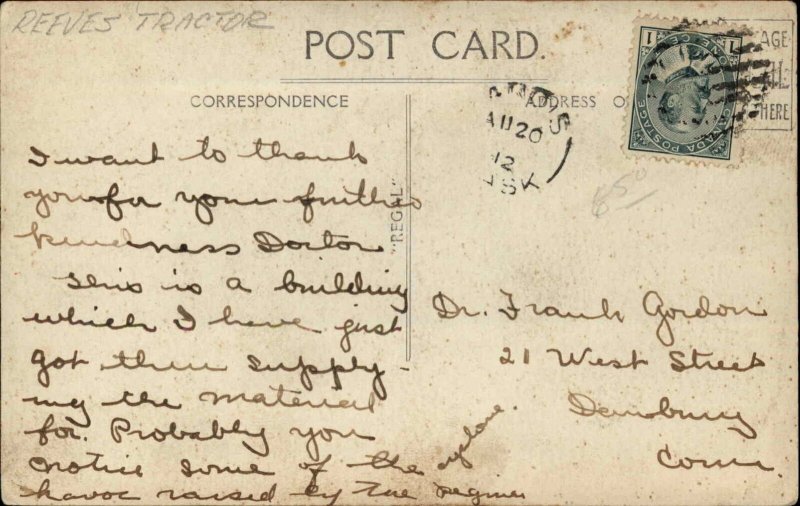 REEVES TRACTOR
POST CARD.
CORRESPONDENCE
ADDRESS O
AGE
HERE
ONE CE
1
1
ADA POSTAGE
AU 20
12
SK
6 50
"REGAL"
I want to thank
you for your further
kindness Doctor
This is a building
which I have just
got thru supply-
ing the material
for. Probably you
notice some of the
havoc raised by the Regina
cyclone.
Dr. Frank Gordon
21 West Street
Danbury
Conn.